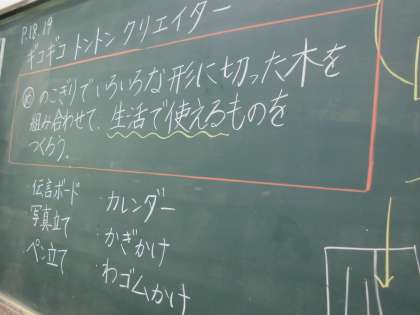 P.18.19
ギコギコ トントン クリエイター
め のこぎりでいろいろな形に切った木を
組み合わせて、生活で使えるものを
つくろう。
・伝言ボード
・写真立て
・ペン立て
・カレンダー
・かぎかけ
・わゴムかけ